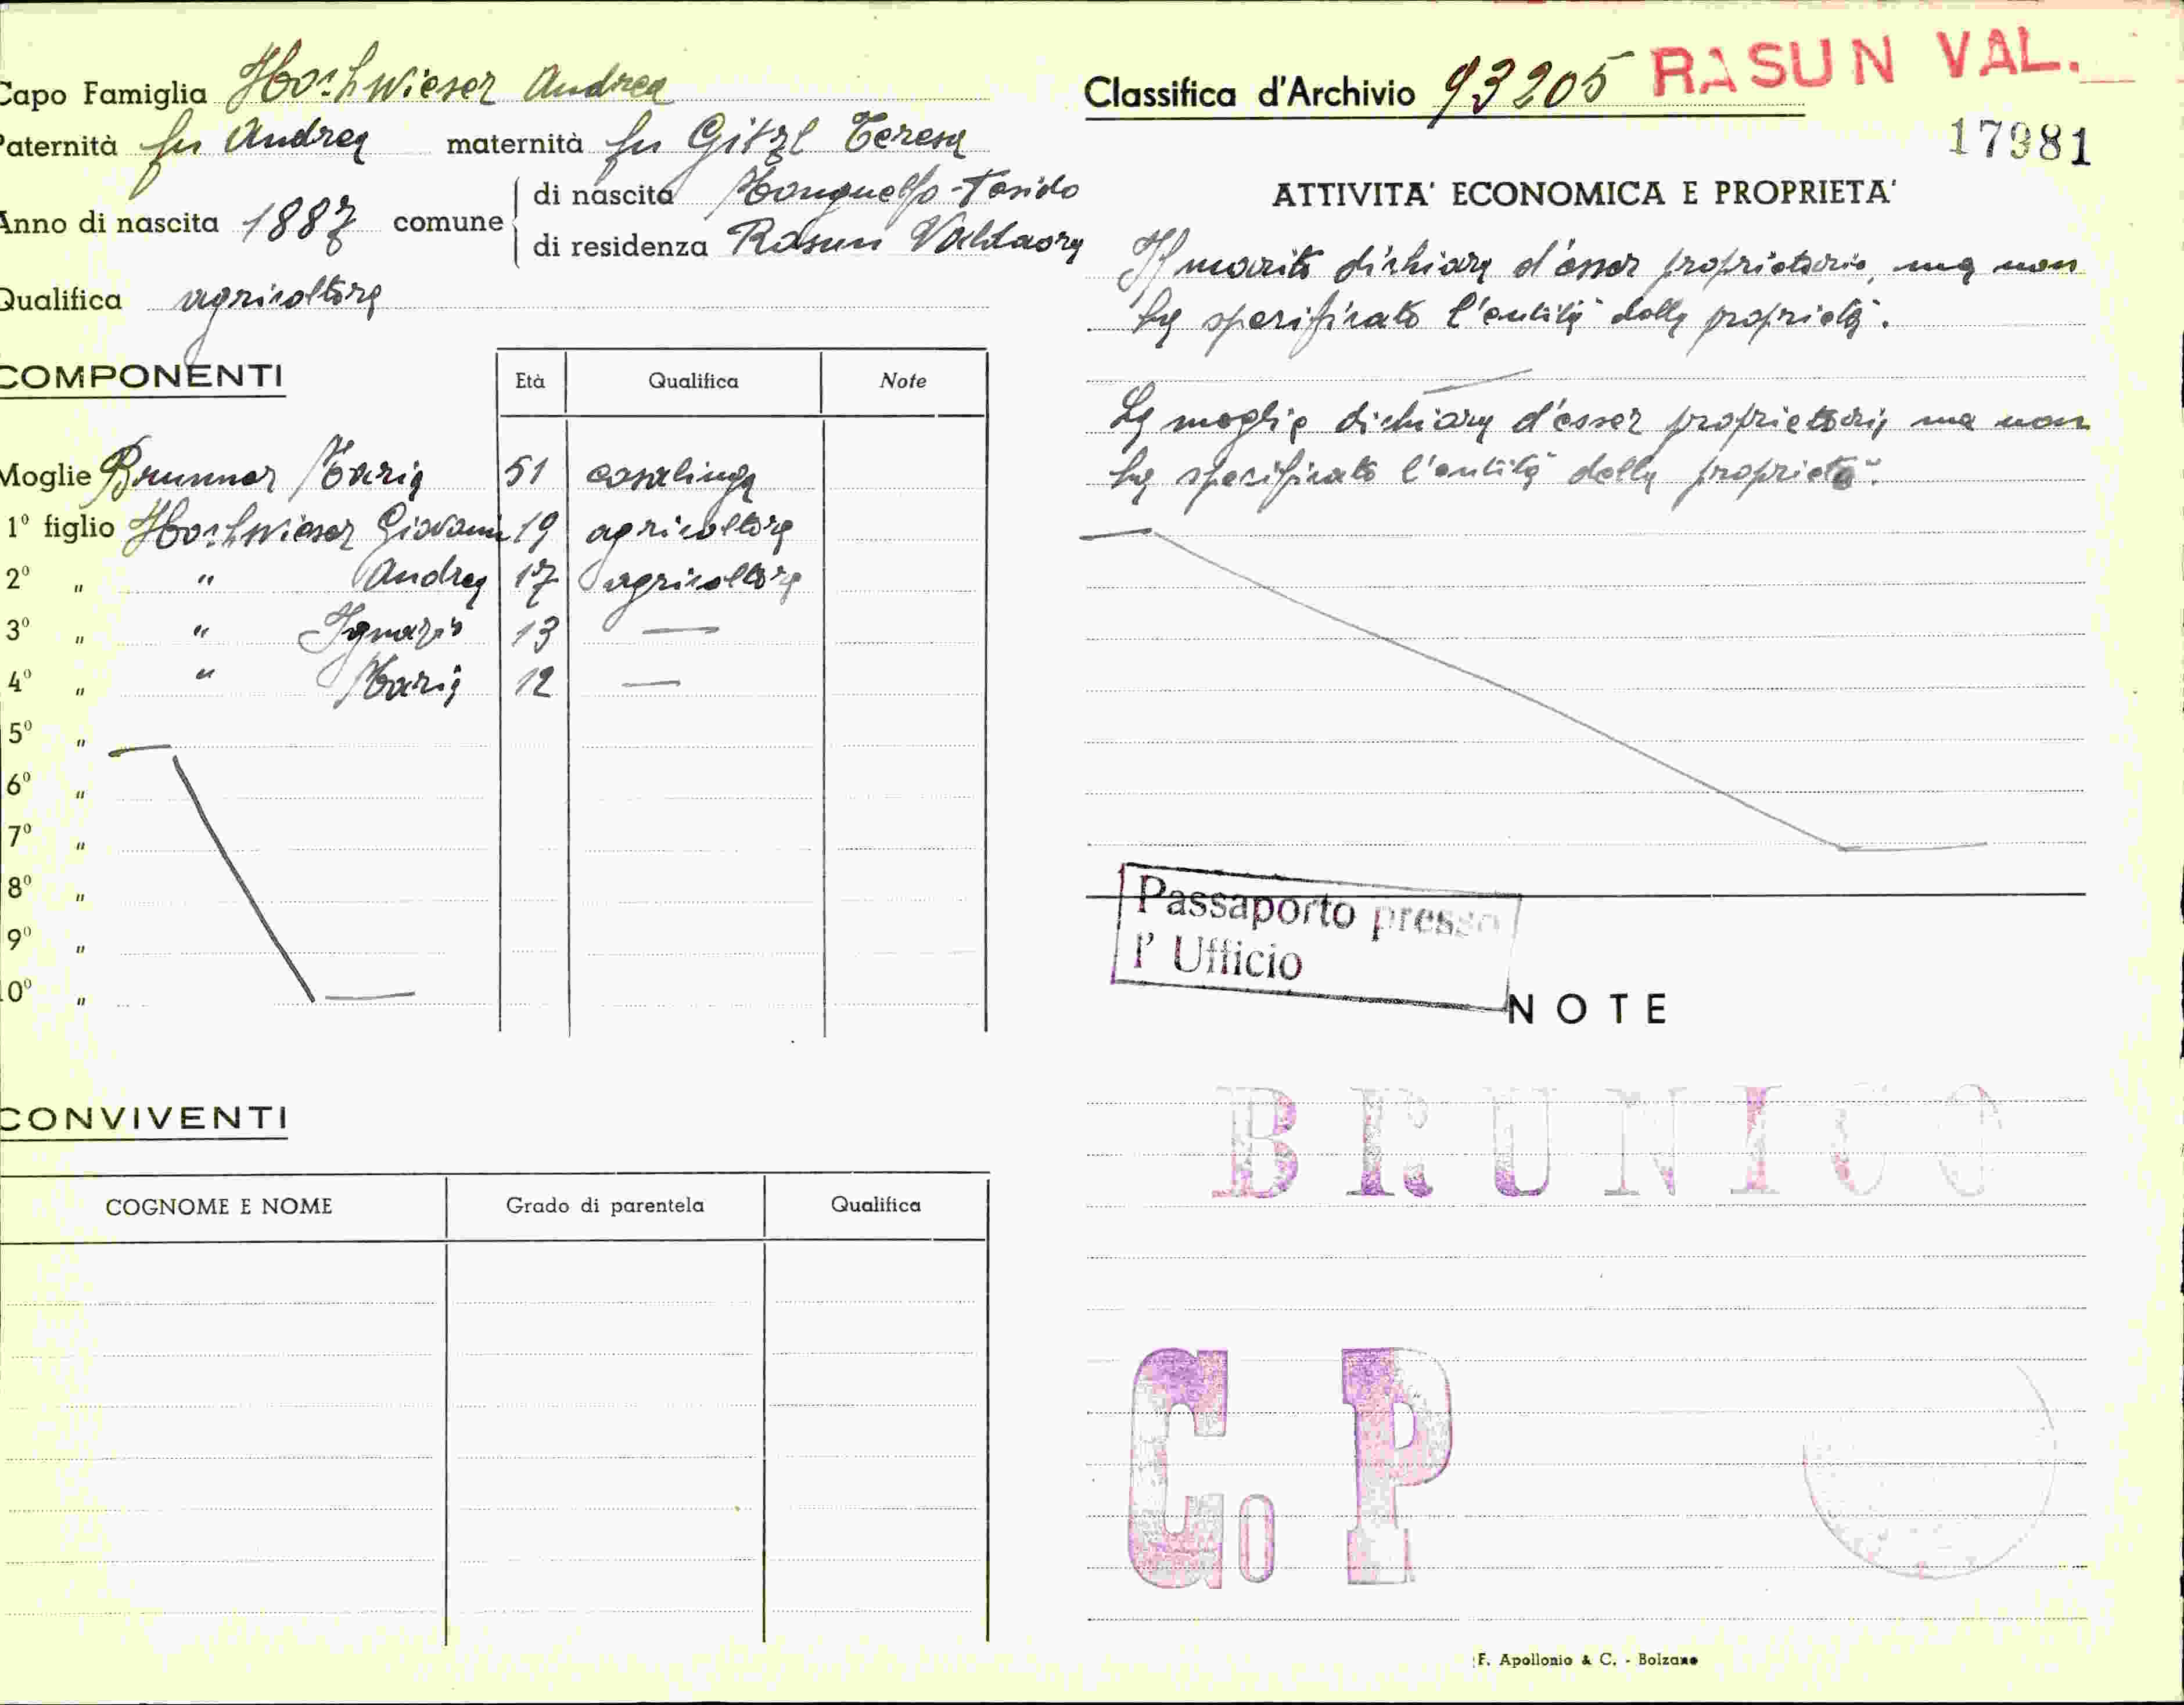 Capo Famiglia Hochwieser Andrea
Paternità fu Andrea maternità fu Gitzl Teresa
Anno di nascita 1887 comune di nascita Monguelfo-Tesido
di residenza Rasun Valdaora
Qualifica agricoltore
COMPONENTI
Età Qualifica Note
Moglie Brunner Maria 51 casalinga
1º figlio Hochwieser Giovanni 19 agricoltore
2º " " Andrea 17 agricoltore
3º " " Ignazio 13 —
4º " " Maria 12 —
5º "
6º "
7º "
8º "
9º "
10º "
CONVIVENTI
COGNOME E NOME Grado di parentela Qualifica
Classifica d'Archivio 93205 RASUN VAL.
17981
ATTIVITA' ECONOMICA E PROPRIETA'
Il marito dichiara d'esser proprietario, ma non
ha specificato l'entità della proprietà.
La moglie dichiara d'esser proprietaria, ma non
ha specificato l'entità della proprietà.
Passaporto presso
l' Ufficio
NOTE
BRUNICO
Co P
F. Apollonio & C. - Bolzano